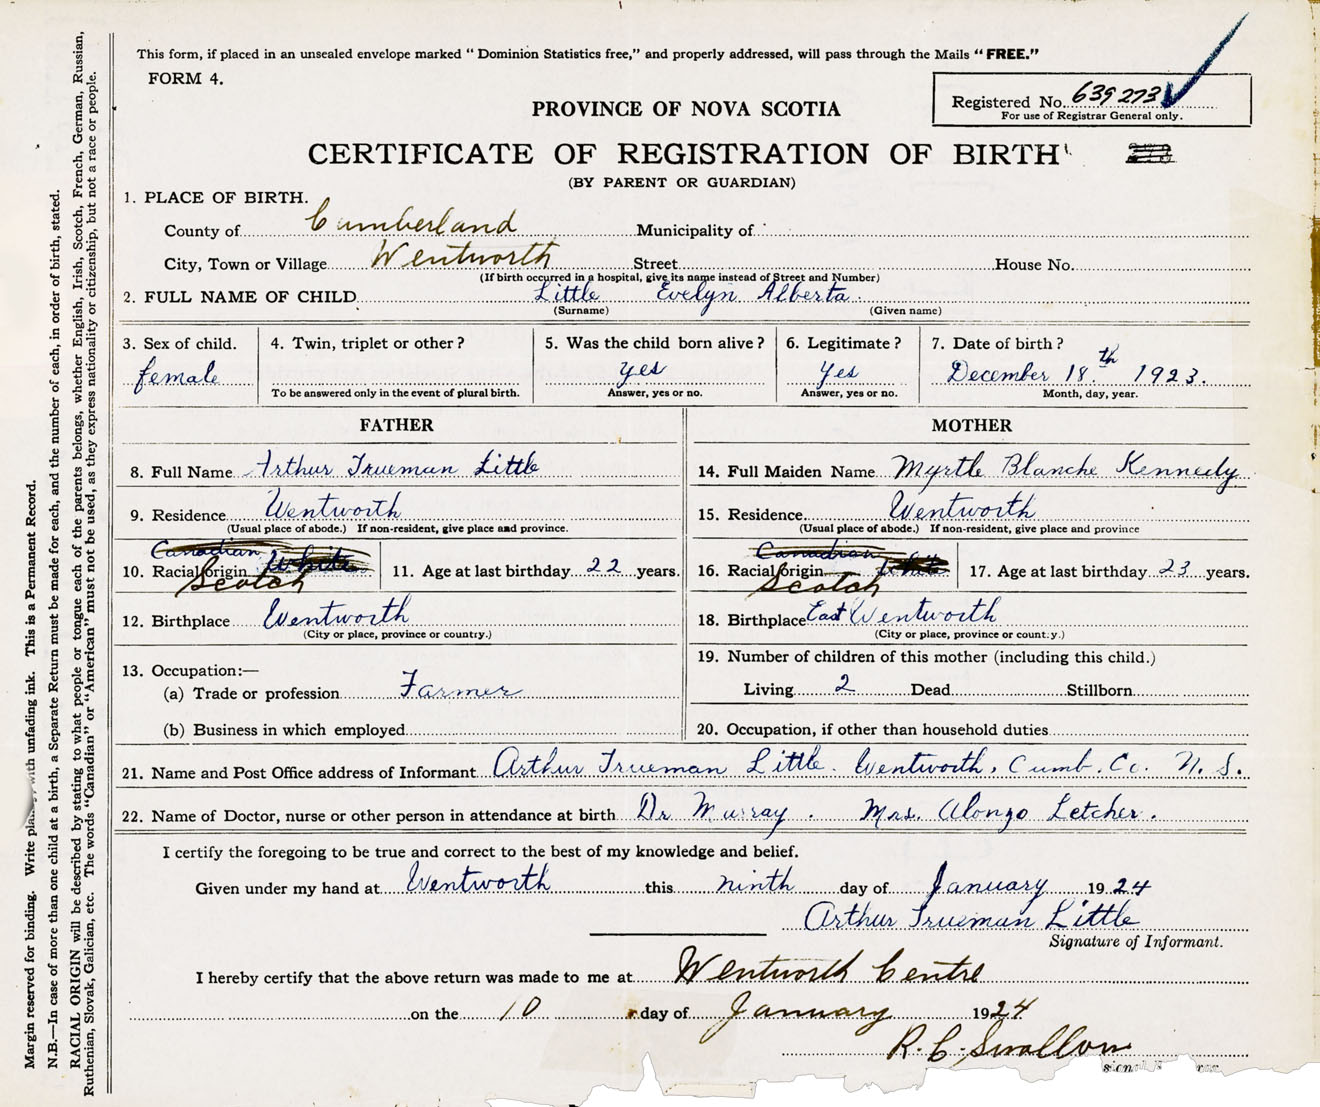 This form, if placed in an unsealed envelope marked "Dominion Statistics free," and properly addressed, will pass through the Mails "FREE."
FORM 4.
Registered No. 639273
For use of Registrar General only.
PROVINCE OF NOVA SCOTIA
CERTIFICATE OF REGISTRATION OF BIRTH
(BY PARENT OR GUARDIAN)
1. PLACE OF BIRTH.
County of Cumberland Municipality of
City, Town or Village Wentworth Street House No.
(If birth occurred in a hospital, give its name instead of Street and Number)
2. FULL NAME OF CHILD Little Evelyn Alberta.
(Surname) (Given name)
3. Sex of child. 4. Twin, triplet or other? 5. Was the child born alive? 6. Legitimate? 7. Date of birth?
female yes Yes December 18th 1923.
To be answered only in the event of plural birth. Answer, yes or no. Answer, yes or no. Month, day, year.
FATHER MOTHER
8. Full Name Arthur Trueman Little 14. Full Maiden Name Myrtle Blanche Kennedy
9. Residence Wentworth 15. Residence Wentworth
(Usual place of abode.) If non-resident, give place and province. (Usual place of abode.) If non-resident, give place and province
Canadian White Canadian White
10. Racial origin Scotch 11. Age at last birthday 22 years. 16. Racial origin Scotch 17. Age at last birthday 23 years.
12. Birthplace Wentworth 18. Birthplace East Wentworth
(City or place, province or country.) (City or place, province or country.)
13. Occupation:— 19. Number of children of this mother (including this child.)
(a) Trade or profession Farmer Living 2 Dead Stillborn
(b) Business in which employed 20. Occupation, if other than household duties
21. Name and Post Office address of Informant Arthur Trueman Little. Wentworth, Cumb. Co. N. S.
22. Name of Doctor, nurse or other person in attendance at birth Dr Murray. Mrs. Alonzo Letcher.
I certify the foregoing to be true and correct to the best of my knowledge and belief.
Given under my hand at Wentworth this ninth day of January 1924
Arthur Trueman Little
Signature of Informant.
I hereby certify that the above return was made to me at Wentworth Centre
on the 10 day of January 1924
R. C. Swallow
Margin reserved for binding. Write with unfading ink. This is a Permanent Record.
N.B.—In case of more than one child at a birth, a Separate Return must be made for each, and the number of each, in order of birth, stated.
RACIAL ORIGIN will be described by stating to what people or tongue each of the parents belongs, whether English, Irish, Scotch, French, German, Russian,
Ruthenian, Slovak, Galician, etc. The words "Canadian" or "American" must not be used, as they express nationality or citizenship, but not a race or people.